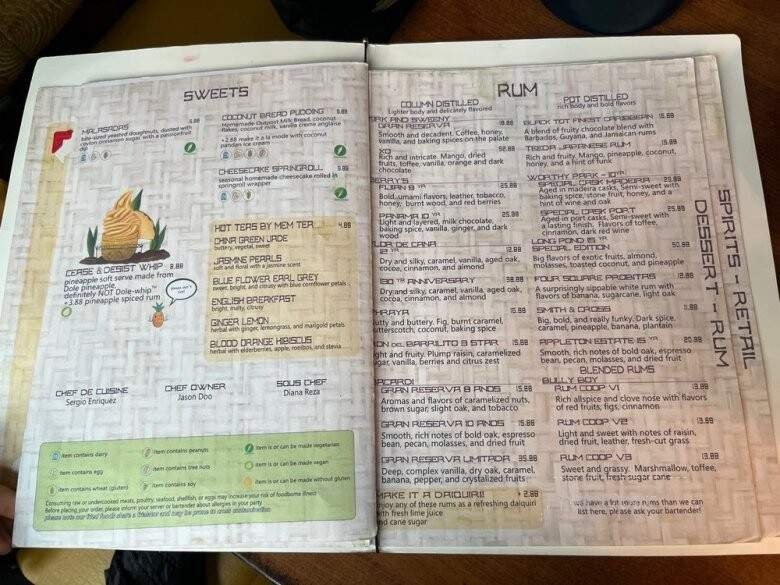 SWEETS
MALASADAS
bite-sized yeasted doughnuts, dusted with
ceylon cinnamon sugar, with a passionfruit
dip
COCONUT BREAD PUDDING 9.88
Homemade Outpost Milk Bread, coconut
flakes, coconut milk, vanilla creme anglaise
+2.88 make it a la mode with coconut
pandan ice cream
CHEESECAKE SPRINGROLL 9.88
seasonal homemade cheesecake rolled in
springroll wrapper
CEASE & DESIST WHIP 8.88
pineapple soft serve made from
Dole pineapple,
definitely NOT Dole-whip™
+3.88 pineapple spiced rum
HOT TEAS BY MEM TEA 4.88
CHINA GREEN JADE
buttery, vegetal, sweet
JASMINE PEARLS
soft and floral with a jasmine scent
BLUE FLOWER EARL GREY
sweet, bright, and citrusy with blue cornflower petals
ENGLISH BREAKFAST
bright, malty, citrusy
GINGER LEMON
herbal with ginger, lemongrass, and marigold petals
BLOOD ORANGE HIBISCUS
herbal with elderberries, apple, rooibos, and stevia
CHEF DE CUISINE
Sergio Enriquez
CHEF OWNER
Jason Doo
SOUS CHEF
Diana Reza
item contains dairy
item contains peanuts
item is or can be made vegetarian
item contains egg
item contains tree nuts
item is or can be made vegan
item contains wheat (gluten)
item contains soy
item is or can be made without gluten
Consuming raw or undercooked meats, poultry, seafood, shellfish, or eggs may increase your risk of foodborne illness
Before placing your order, please inform your server or bartender about allergies in your party
please note our fried foods share a friolator and may be prone to cross contamination
RUM
COLUMN DISTILLED
Lighter body and delicately flavored
AND SWEENY
GRAN RESERVA
Smooth and decadent. Coffee, honey,
vanilla, and baking spices on the palate
XO
Rich and intricate. Mango, dried
fruits, toffee, vanilla, orange and dark
chocolate
YR
Bold, umami flavors, leather, tobacco,
honey, burnt wood, and red berries
PANAMA 10 YR 25.88
Light and layered, milk chocolate,
baking spice, vanilla, ginger, and dark
wood
DE CANA
12 YR 12.88
Dry and silky, caramel, vanilla, aged oak,
cocoa, cinnamon, and almond
ANNIVERSARY 38.88
Dry and silky, caramel, vanilla, aged oak,
cocoa, cinnamon, and almond
and buttery. Fig, burnt caramel,
butterscotch, coconut, baking spice
DEL BARRILITO 3 STAR 15.88
and fruity. Plump raisin, caramelized
sugar, vanilla, berries and citrus zest
GRAN RESERVA 8 ANOS 15.88
Aromas and flavors of caramelized nuts,
brown sugar, slight oak, and tobacco
GRAN RESERVA 10 ANOS 15.88
Smooth, rich notes of bold oak, espresso
bean, pecan, molasses, and dried fruit
GRAN RESERVA LIMITADA 35.88
Deep, complex vanilla, dry oak, caramel,
banana, pepper, and crystalized fruits
MAKE IT A DAIQUIRI! +2.88
enjoy any of these rums as a refreshing daiquiri
with fresh lime juice
and cane sugar
POT DISTILLED
rich body and bold flavors
BLACK TOT FINEST CARIBBEAN 15.88
A blend of fruity chocolate blend with
Barbados, Guyana, and Jamaican rums
TEEDA JAPANESE RUM 15.88
Rich and fruity. Mango, pineapple, coconut,
honey, and a hint of funk
WORTHY PARK - 10YR
SPECIAL CASK MADEIRA 25.88
Aged in madeira casks, Semi-sweet with
baking spice, stone fruit, honey, and a
hint of wine and oak
SPECIAL CASK PORT 25.88
Aged in port casks, Semi-sweet with
a lasting finish. Flavors of toffee,
cinnamon, dark red wine
LONG POND 15 YR
SPECIAL EDITION 50.88
Big flavors of exotic fruits, almond,
molasses, toasted coconut, and pineapple
FOUR SQUARE PROBITAS 12.88
A surprisingly sippable white rum with
flavors of banana, sugarcane, light oak
SMITH & CROSS 11.88
Big, bold, and really funky. Dark spice,
caramel, pineapple, banana, plantain
APPLETON ESTATE 15 YR 20.88
Smooth, rich notes of bold oak, espresso
bean, pecan, molasses, and dried fruit
BLENDED RUMS
BULLY BOY
RUM COOP V1 13.88
Rich allspice and clove nose with flavors
of red fruits, figs, cinnamon
RUM COOP V2 13.88
Light and sweet with notes of raisin,
dried fruit, leather, fresh-cut grass
RUM COOP V3 13.88
Sweet and grassy. Marshmallow, toffee,
stone fruit, fresh sugar cane
we have a lot more rums than we can
list here, please ask your bartender!
SPIRITS - RETAIL
DESSERT - RUM